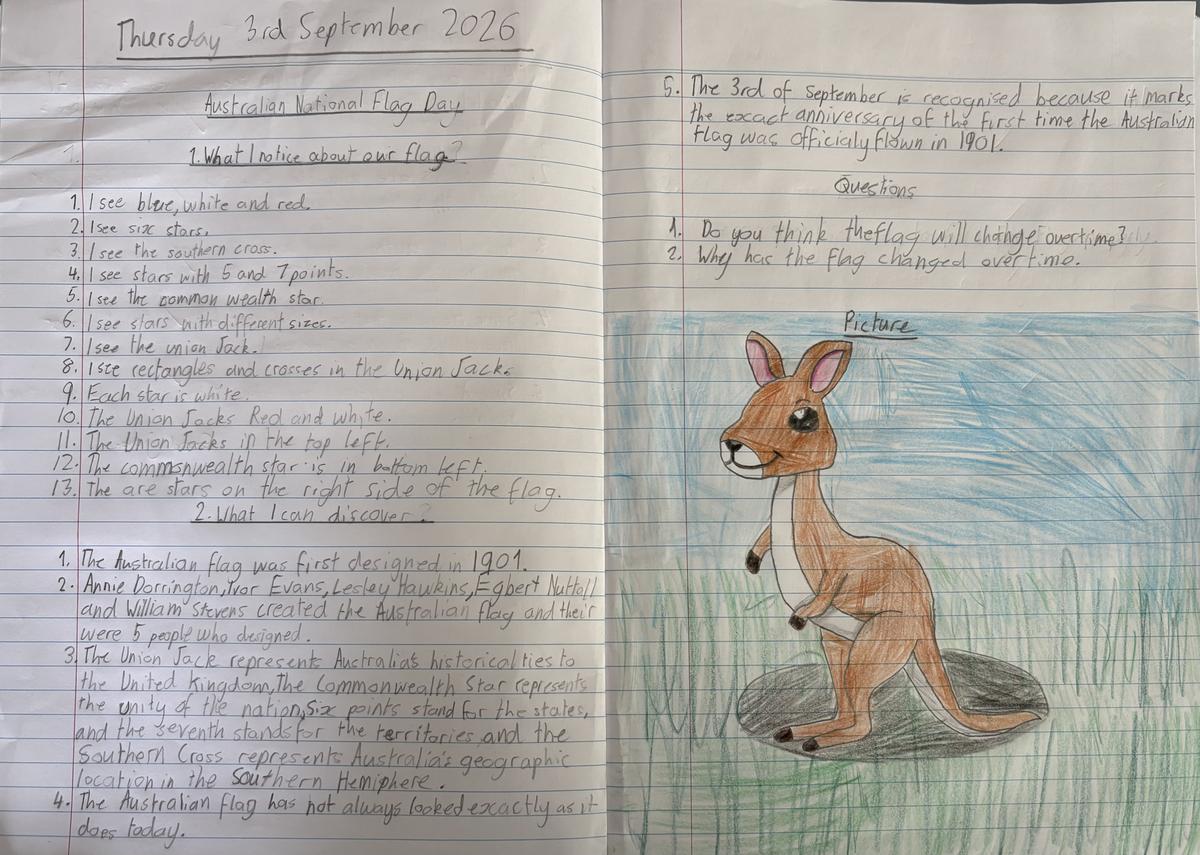 Thursday 3rd September 2026
Australian National Flag Day
1. What I notice about our flag?
1. I see blue, white and red.
2. I see six stars.
3. I see the southern cross.
4. I see stars with 5 and 7 points.
5. I see the common wealth star.
6. I see stars with different sizes.
7. I see the union Jack.
8. I see rectangles and crosses in the Union Jack.
9. Each star is white.
10. The Union Jacks Red and white.
11. The Union Jacks in the top left.
12. The commonwealth star is in bottom left.
13. The are stars on the right side of the flag.
2. What I can discover?
1. The Australian flag was first designed in 1901.
2. Annie Dorrington, Ivor Evans, Lesley Hawkins, Egbert Nuttall
and William Stevens created the Australian flag and their
were 5 people who designed.
3. The Union Jack represents Australia's historical ties to
the United Kingdom, The Commonwealth Star represents
the unity of the nation, Six points stand for the states,
and the seventh stands for the territories and the
Southern Cross represents Australia's geographic
location in the Southern Hemiphere.
4. The Australian flag has not always looked exactly as it
does today.
5. The 3rd of September is recognised because it marks
the exact anniversary of the first time the Australian
flag was officialy flown in 1901.
Questions
1. Do you think the flag will change overtime?
2. Why has the flag changed overtime.
Picture